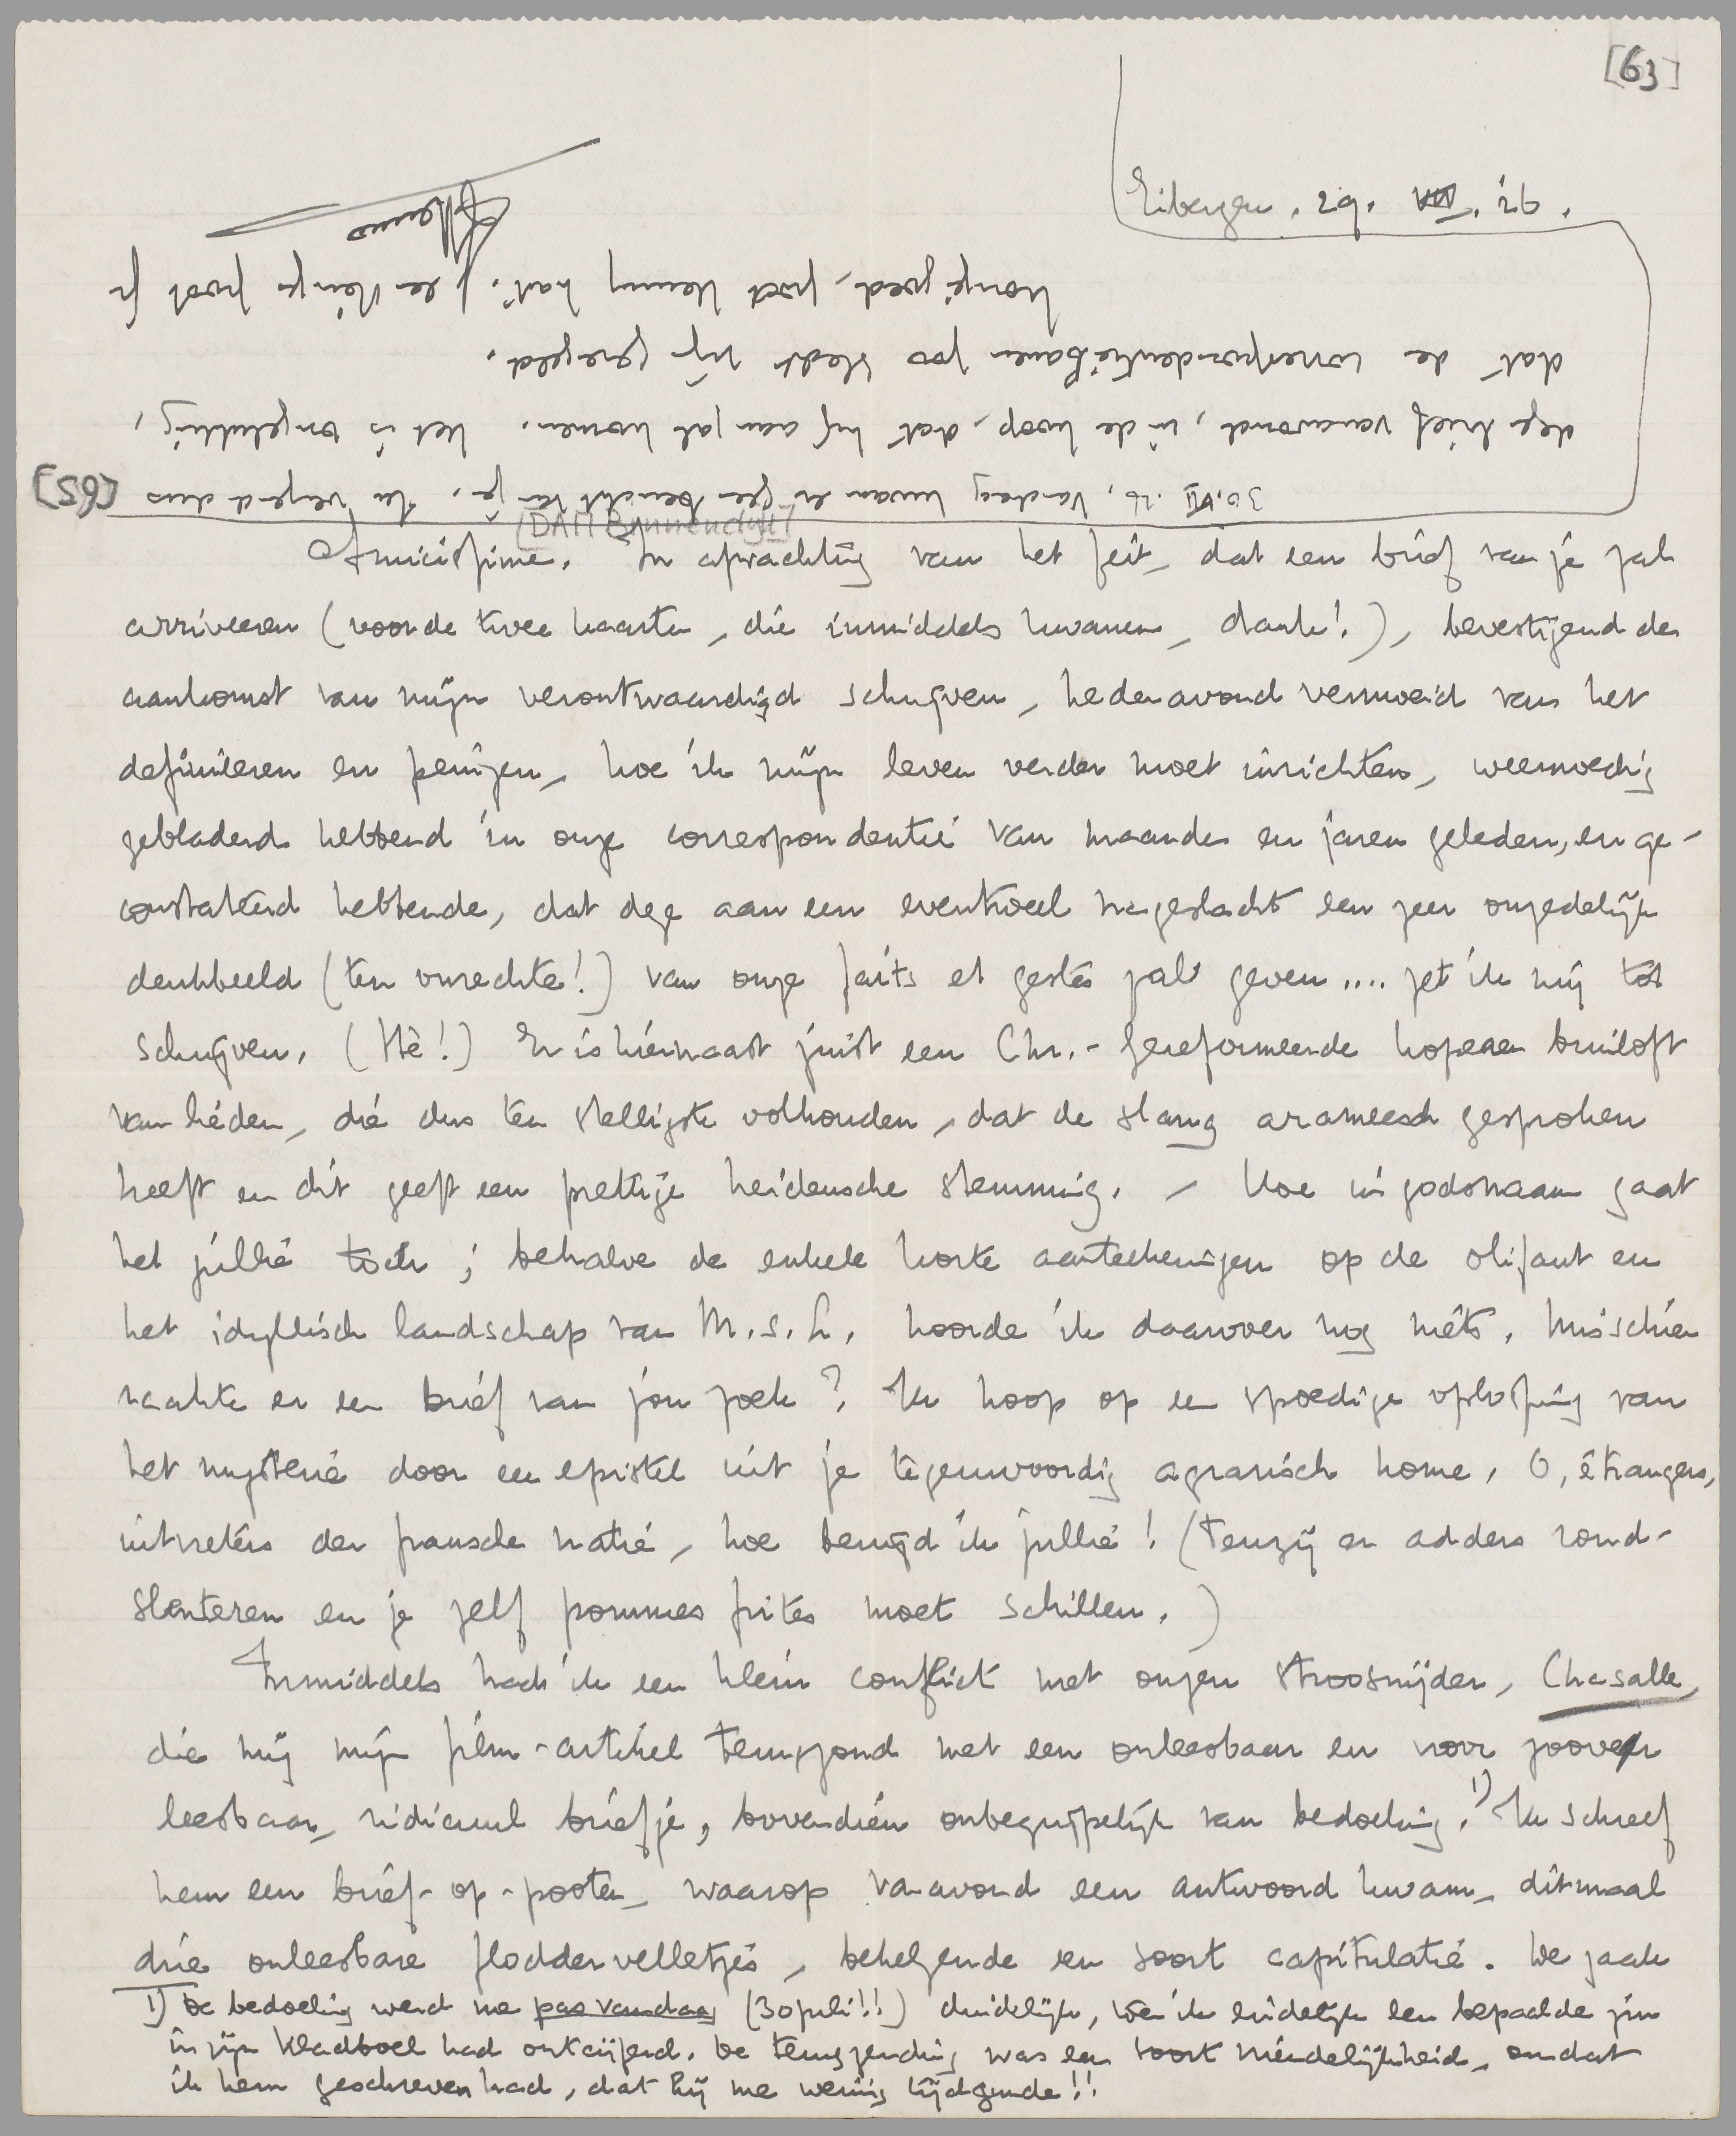 [63]
Eibergen. 29. VII. 26.
Amicissime. In afwachting van het feit, dat een brief van je zal
(DAM Binnendijk)
arriveeren (voor de twee kaarten, die inmiddels kwamen, dank!), bevestigend de
aankomst van mijn verontwaardigd schrijven, hedenavond vermoeid van het
definieeren en peinzen, hoe ik mijn leven verder moet inrichten, weemoedig
gebladerd hebbend in onze correspondentie van maanden en jaren geleden, en ge-
constateerd hebbende, dat deze aan een eventueel nageslacht een zeer onzedelijk
denkbeeld (ten onrechte!) van onze faits et gestes zal geven .... zet ik mij tot
schrijven. (Hè!) Er is hiernaast juist een Chr.- Gereformeerde koperen bruiloft
van lieden, die dus ten stelligste volhouden, dat de slang arameesch gesproken
heeft en dit geeft een prettige heidensche stemming. - Hoe in godsnaam gaat
het jullie toch; behalve de enkele korte aanteekeningen op de olifant en
het idyllisch landschap van M.s.L. hoorde ik daarover nog niets. Misschien
raakte er een brief van jou zoek? Ik hoop op een spoedige oplossing van
het mysterie door een epistel uit je tegenwoordig agrarisch home. O, étrangers,
uitvreters der fransche natie, hoe benijd ik jullie! (Tenzij er adders rond-
slenteren en je zelf pommes frites moet schillen.)
Inmiddels had ik een klein conflict met onzen strooSnijder, Chasalle,
die mij mijn film-artikel terugzond met een onleesbaar en voor zoover
leesbaar, ridicuul briefje, bovendien onbegrijpelijk van bedoeling.1) Ik schreef
hem een brief-op-pooten, waarop vanavond een antwoord kwam, ditmaal
drie onleesbare floddervelletjes, behelzende een soort capitulatie. De zaak
1) De bedoeling werd me pas vandaag (30 juli!!) duidelijk, toen ik eindelijk een bepaalde zin
in zijn kladboel had ontcijferd. De terugzending was een soort vriendelijkheid, omdat
ik hem geschreven had, dat hij me weinig tijd gunde!!
[65]
30.VII.26. Vandaag kwam er geen bericht van je. Ik verzend dus
deze brief vanavond, in de hoop, dat hij aan zal komen. Het is ongelukkig,
dat de correspondentiebanen zoo slecht zijn geregeld.
Menno